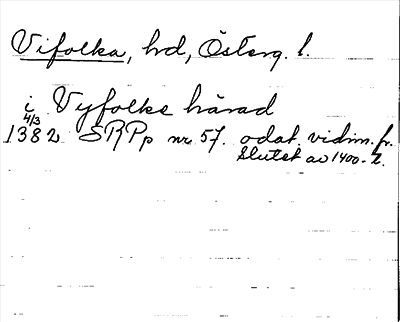 Vifolka, hrd, Österg. l.
i Vyfolke härad
4/3
1382 SRPp nr 57. odat. vidim. fr.
slutet av 1400-t.